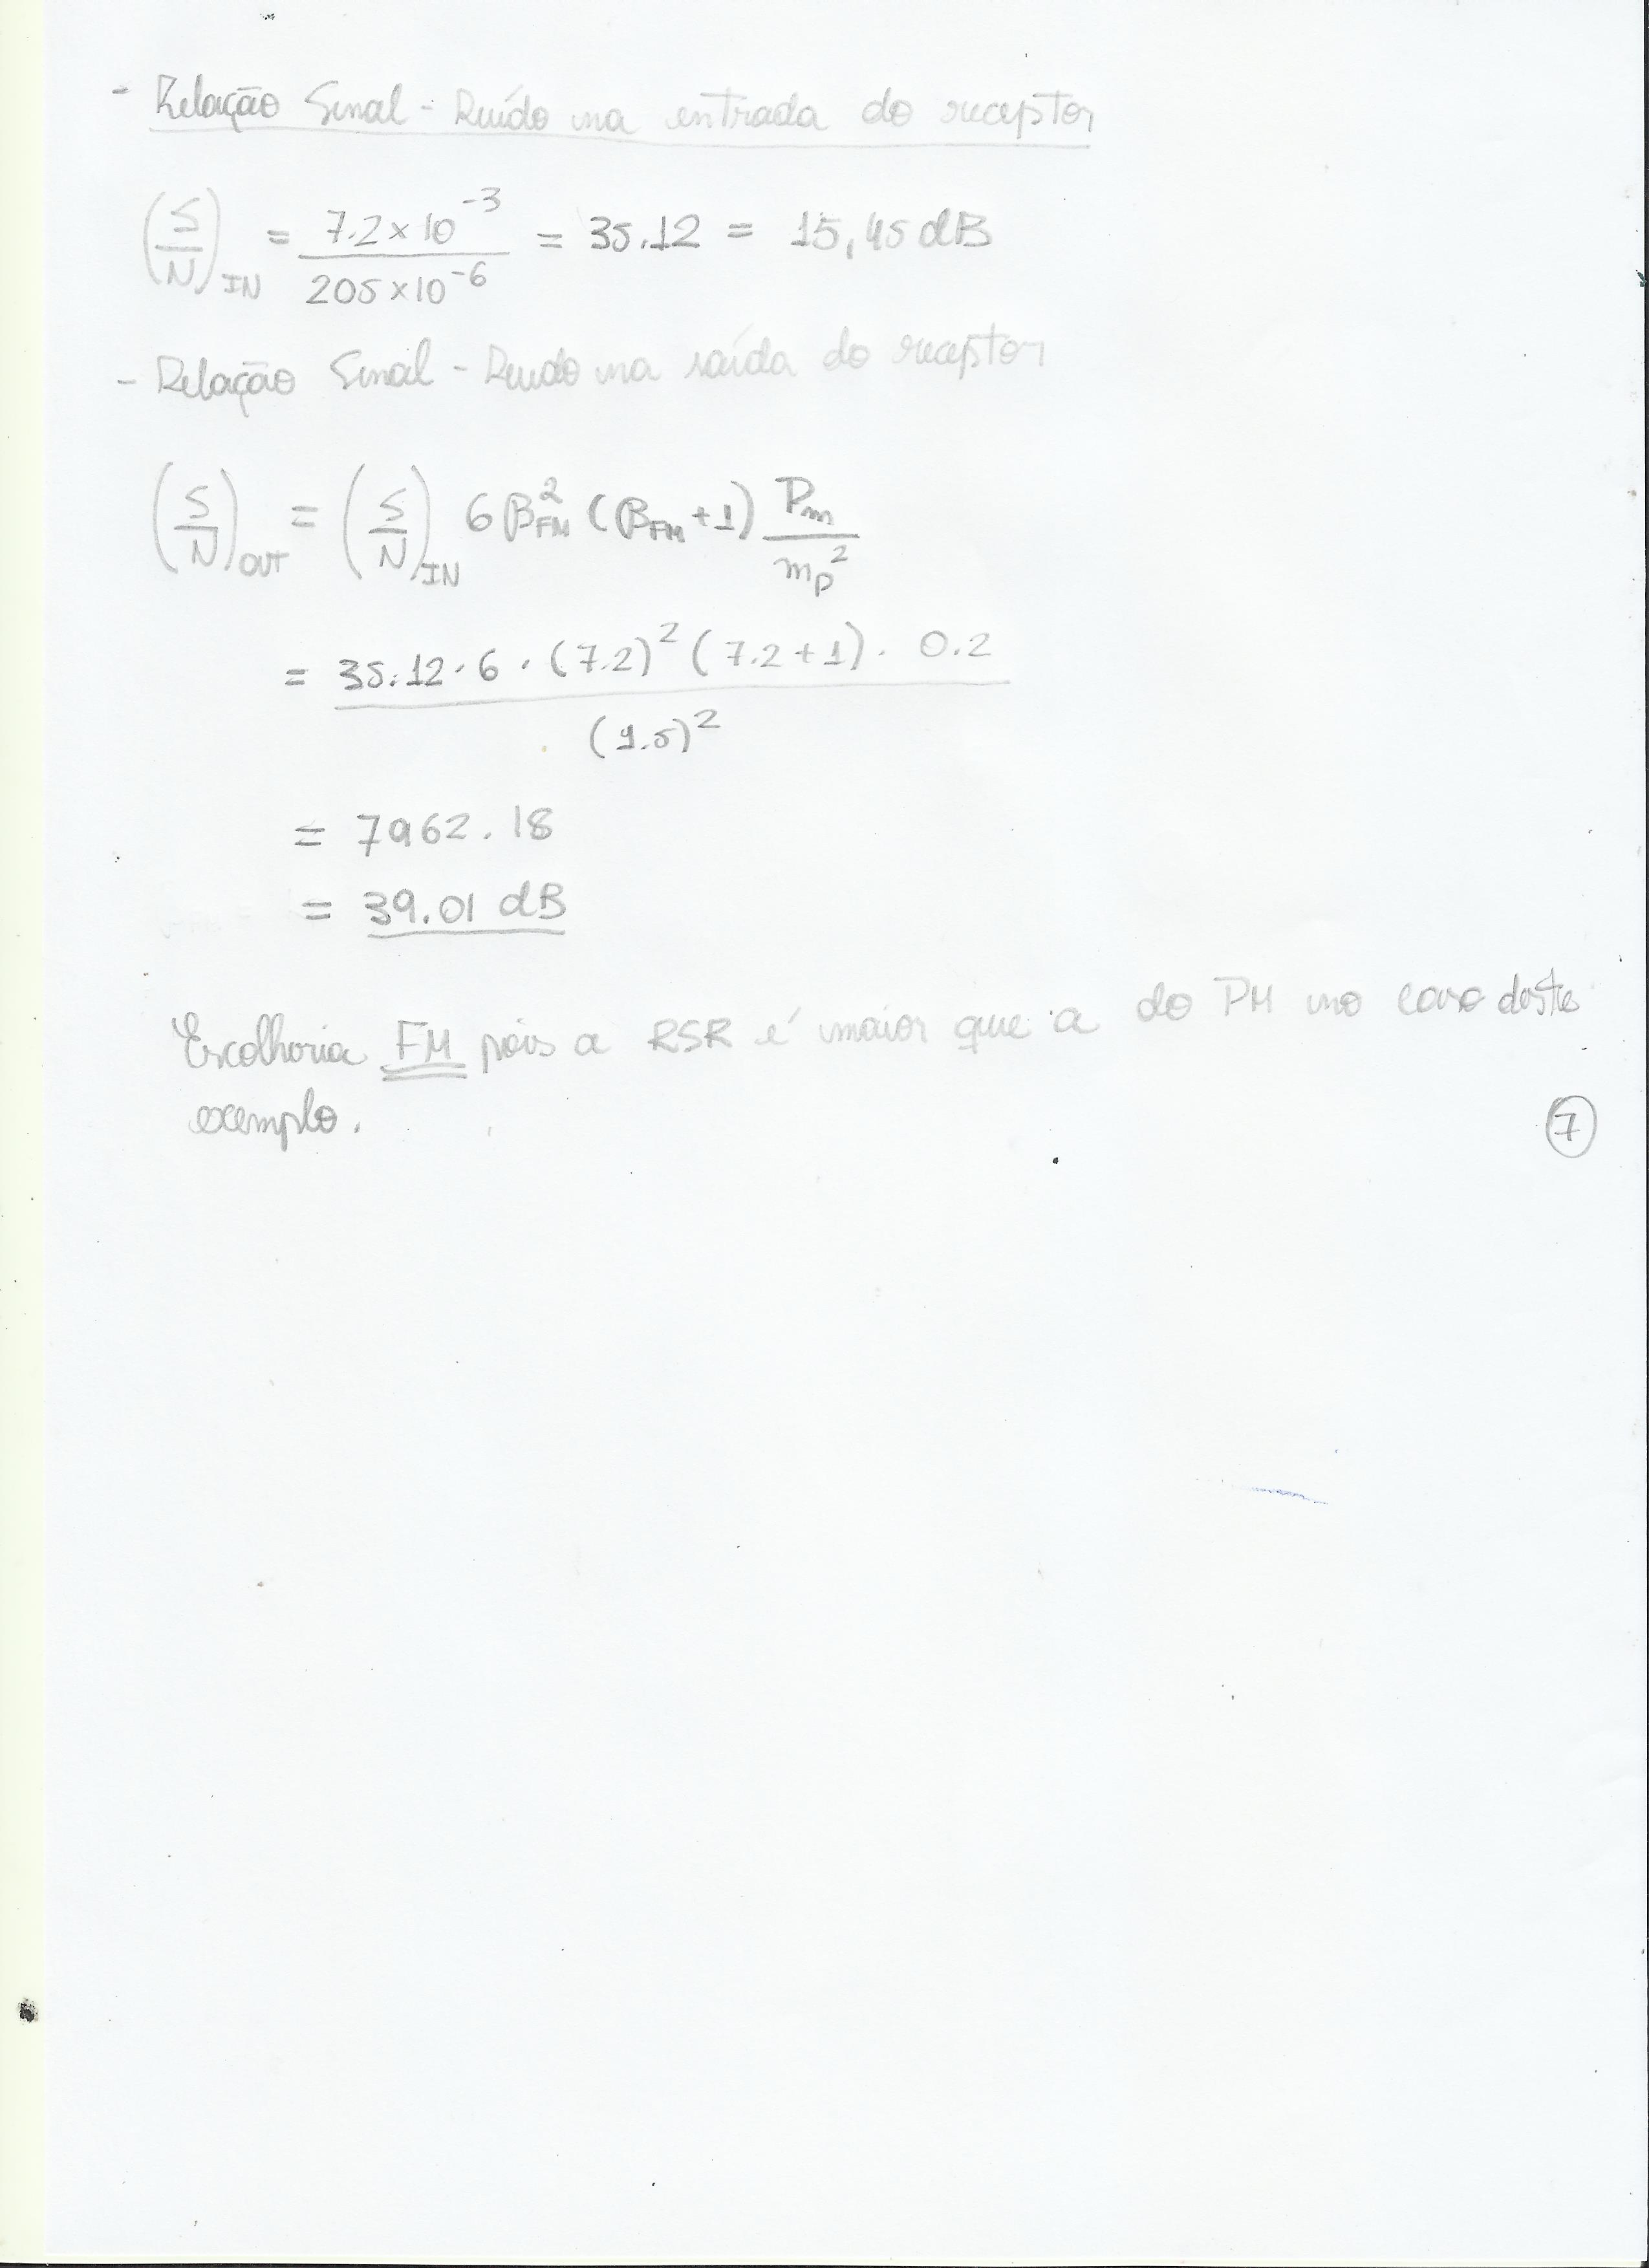 - Relação Sinal-Ruído na entrada do receptor
(S/N)IN = 7.2×10^-3 / 205×10^-6 = 35.12 = 15,45 dB
- Relação Sinal-Ruido na saída do receptor
(S/N)OUT = (S/N)IN 6 β²FM (βFM+1) Pm / mp²
= 35.12 · 6 · (7.2)² (7.2+1) · 0.2 / (1.5)²
= 7962.18
= 39.01 dB
Escolheria FM pois a RSR é maior que a do PM no caso deste
exemplo.
7